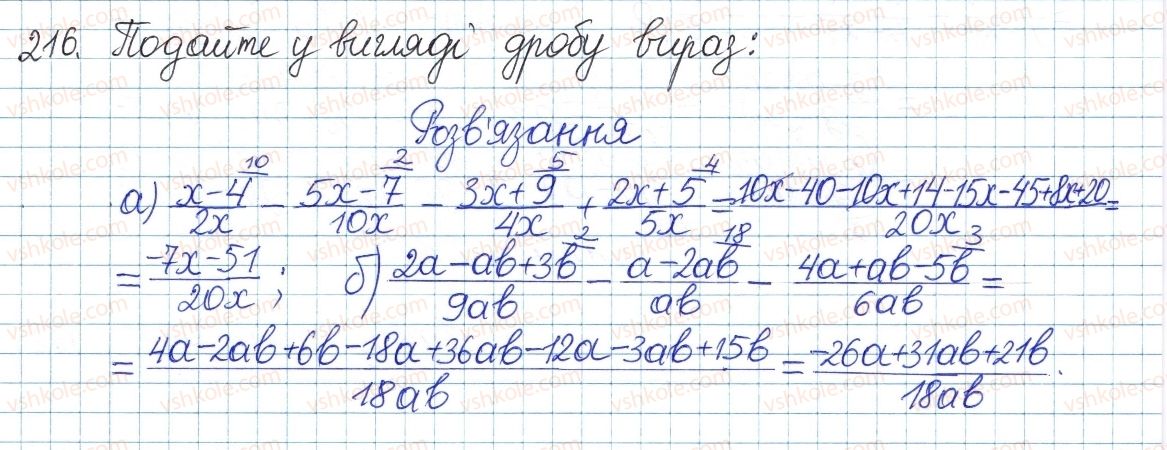 216. Подайте у вигляді дробу вираз:
Розв'язання
а) (x-4)^10/2x - (5x-7)^2/10x - (3x+9)^5/4x + (2x+5)^4/5x = (10x-40-10x+14-15x-45+8x+20)/20x =
= (-7x-51)/20x; б) (2a-ab+3b)^2/9ab - (a-2ab)^18/ab - (4a+ab-5b)^3/6ab =
= (4a-2ab+6b-18a+36ab-12a-3ab+15b)/18ab = (-26a+31ab+21b)/18ab.